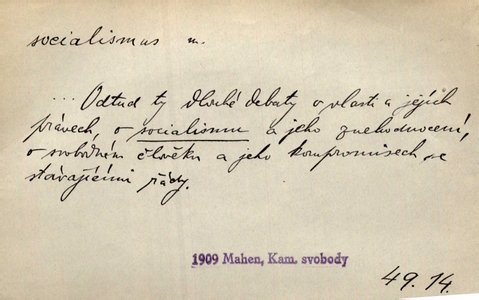 socialismus m.
... Odtud ty dlouhé debaty o vlasti a jejich
právech, o socialismu a jeho znehodnocení,
o svobodném člověku a jeho kompromisech se
stávajícími řády.
1909 Mahen, Kam. svobody
49.14.